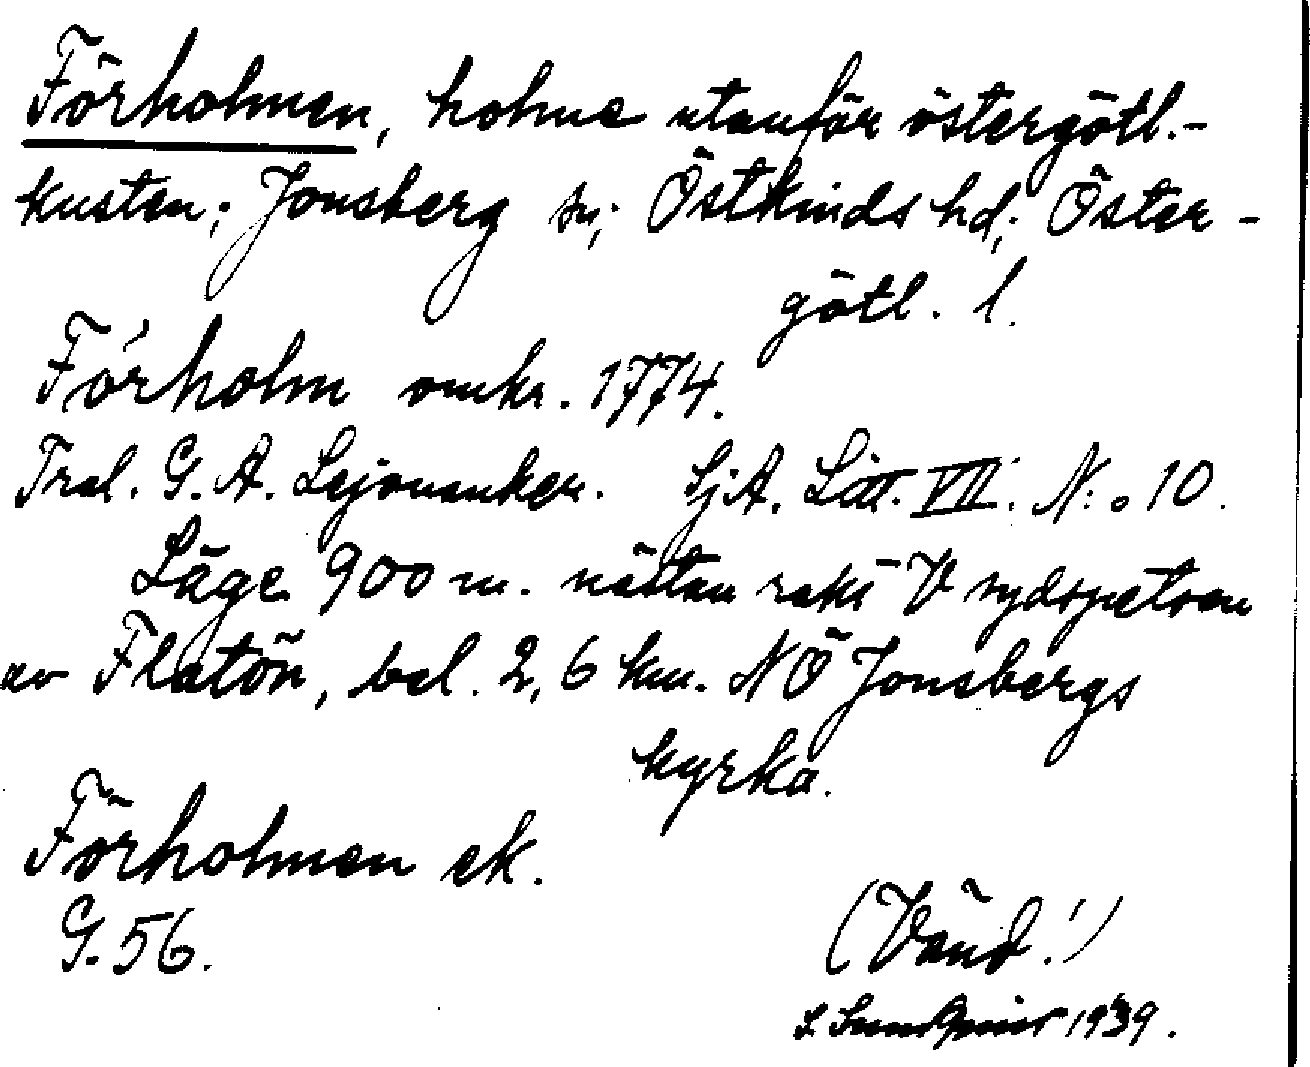 Förholmen, holme utanför östergötl.-
kusten; Jonsberg sn; Östkinds hd; Öster-
götl. l.
Förholm omkr. 1774.
Tral. G. A. Lejonanker. SjA. Litt. VII. N:o 10.
Läge 900 m. nästan rakt V sydspetsen
av Flatön, bel. 2,6 km. NÖ Jonsbergs
kyrka.
Förholmen ek.
G. 56.
(Vänd!)
S. 1939.